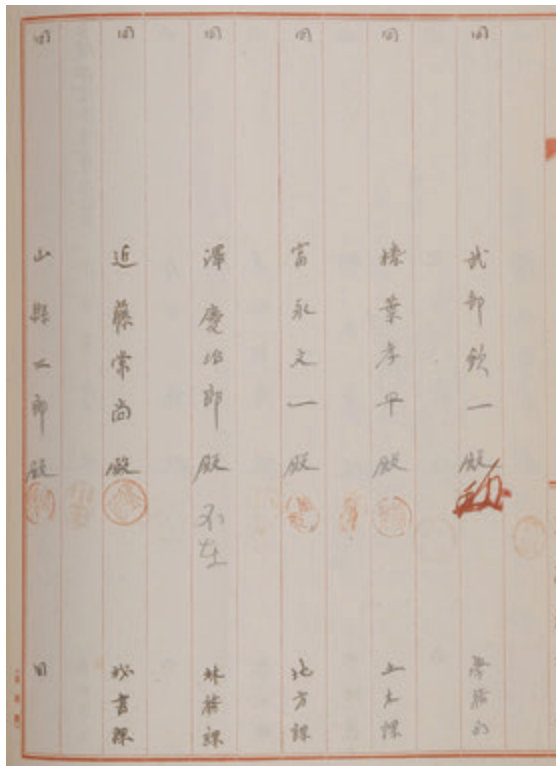 同 武部欽一殿 学務局
同 榛葉孝平殿 土木課
同 富永文一殿 地方課
同 澤慶治郎殿 不在 林務課
同 近藤常尚殿 秘書課
同 山縣三郎殿 同